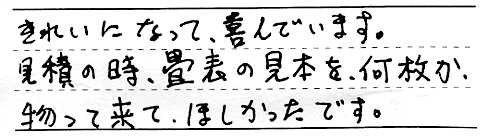 きれいになって、喜んでいます。
見積の時、畳表の見本を、何枚か、
物って来て、ほしかったです。